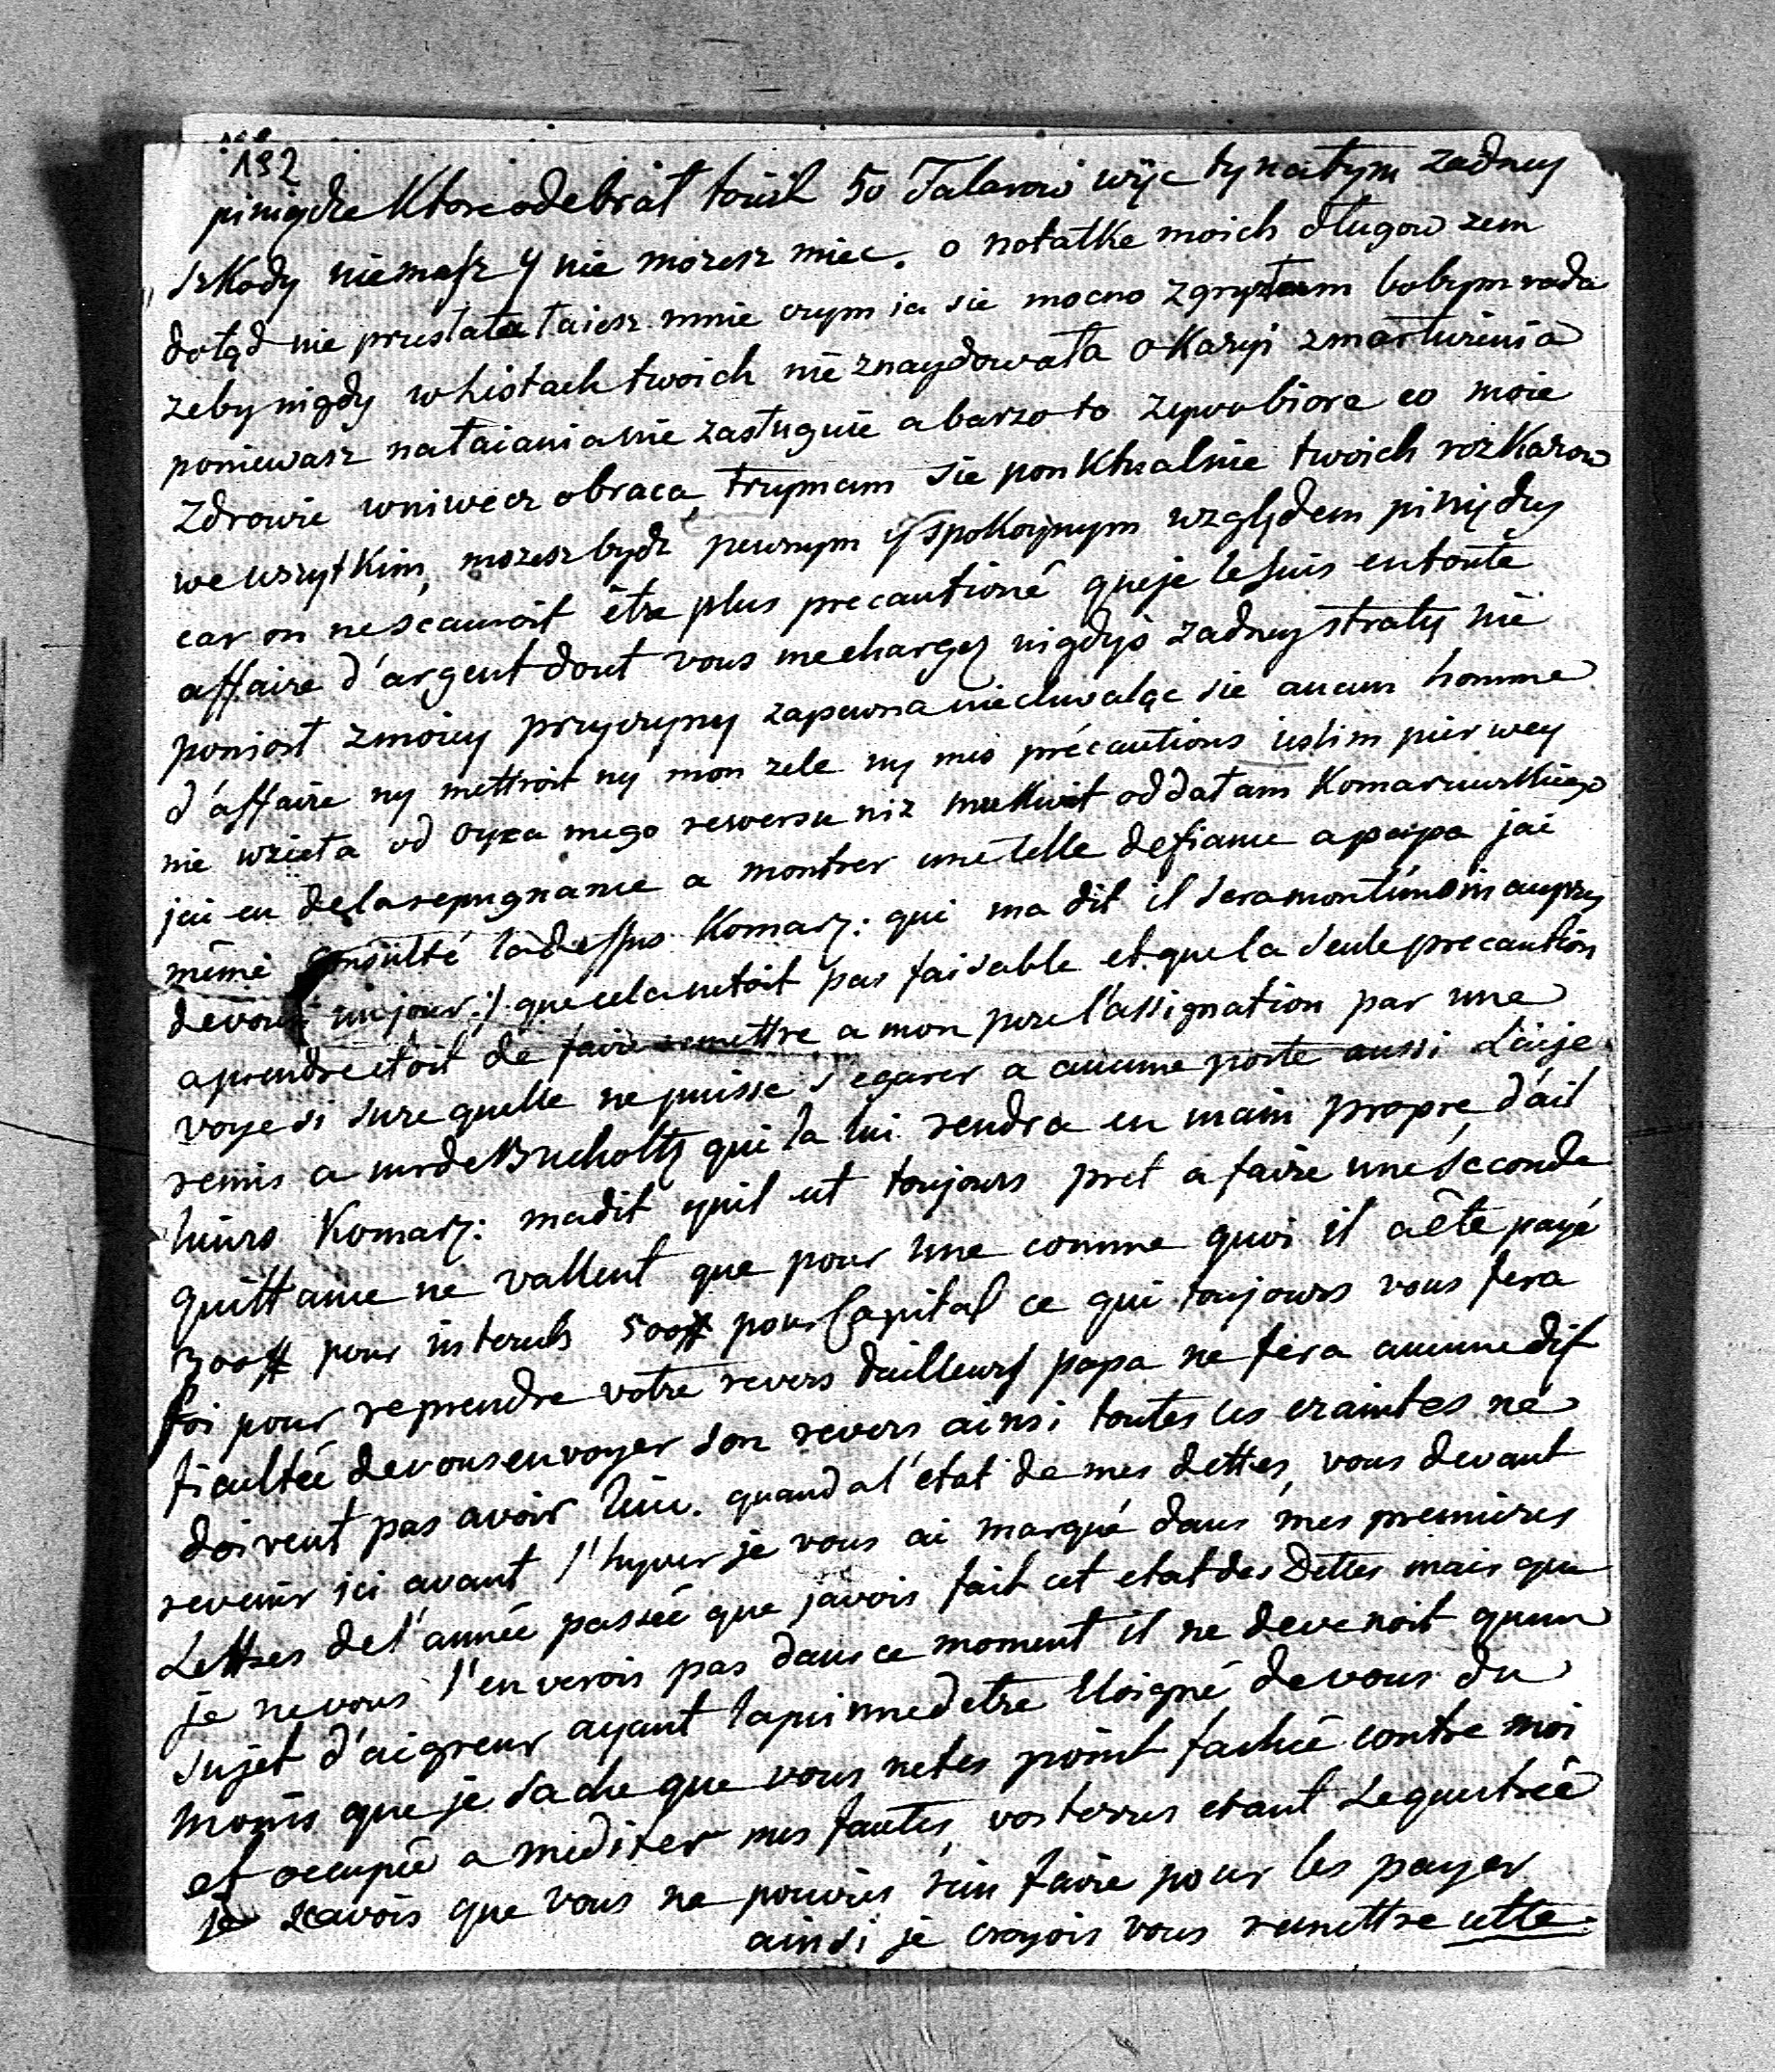 192
piniądze Ktore odebrał toiest 50 Talarow więc ty natym zadney
szkody niemasz y nie mozesz miec. o notatke moich długow zem
dotąd nie przesłała łaiesz mnie czym ia sie mocno zgryzłam bobym rada
zeby nigdy w Listach twoich nie znaydowała okazyi zmartwienia
poniewasz na łaiania nie zasługuie a barzo to zywo biore co moie
Zdrowie wniwecz obraca, trzymam sie ponktualnie twoich rozkazow
we wszytkim, mozesz bydz pewnym y spokoynym względem piniędzy
car on ne scauroit être plus precautioné que je le suis en toute
affaire d'argent dont vous me chargez nigdys zadney straty nie
poniosł z moiey przyczyny zapewna nie chwaląc sie aucun homme
d'affaire ny mettroit ny mon zele ny mes précautions ieslim pierwey
nie wzieła od oyca mego rewersu niz mu kwit oddałam Komarzewskiego
jai eu de la repugnance a montrer une telle defiance a papa jai
même consulté la dessus Komarz: qui ma dit il sera mon témoin auprez
de vous un jour :/ que cela netoit pas faisable et que la seule precaution
a prendre etoit de faire remettre a mon pere l'assignation par une
voye si sure quelle ne puisse s'egarer a aucune poste aussi L'aije
remis a mr de Bucholtz qui la lui rendra en main propre, d'ail
leurs Komarz: madit quil est toujours pret a faire une seconde
quittance ne vallent que pour une comme quoi il a ête payé
300# pour interets 500# pour Capital ce qui toujours vous fera
foi pour reprendre votre revers dailleurs papa ne fera aucune dif
ficultée de vous envoyer son revers ainsi toutes ces craintes ne
doivent pas avoir lieu. quand a l'etat de mes dettes, vous devant
revenir ici avant l'hyver je vous ai marqué dans mes premieres
Lettres de l'année passée que javois fait cet etat des Dettes mais que
je ne vous l'enverois pas dans ce moment il ne devenoit quun
sujet d'aigreur ayant la peinne d'etre Eloigné de vous du
moins que je sache que vous netes point fachée contre moi
et occupée a mediter mes fautes, vos terres etant Sequestrée
je scavois que vous ne pouvies rien faire pour les payer
ainsi je croyois vous remettre cette